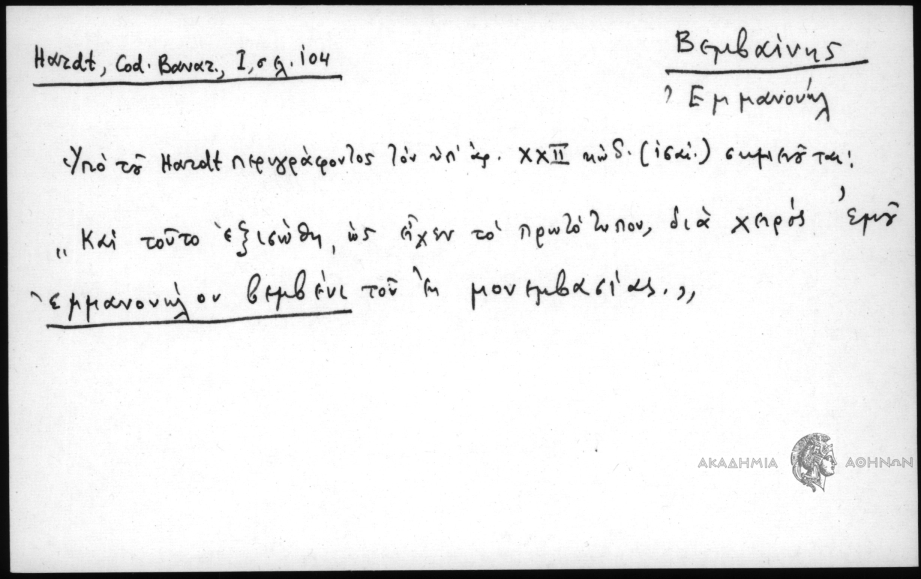 Hardt, Cod. Bavar., I, σελ. 104
Βεμβαίνης
Ἐμμανουήλ
Ὑπὸ τοῦ Hardt περιγράφοντος τὸν ὑπ' ἀρ. XXII κώδ. (ἰσαί.) σημειοῦται:
„ Καὶ τοῦτο ἐξισώθη, ὡς εἶχεν τὸ πρωτότυπον, διὰ χειρός ἐμοῦ
ἐμμανουήλου βεμβένι τοῦ ἐκ μονεμβασίας.„
ΑΚΑΔΗΜΙΑ ΑΘΗΝΩΝ